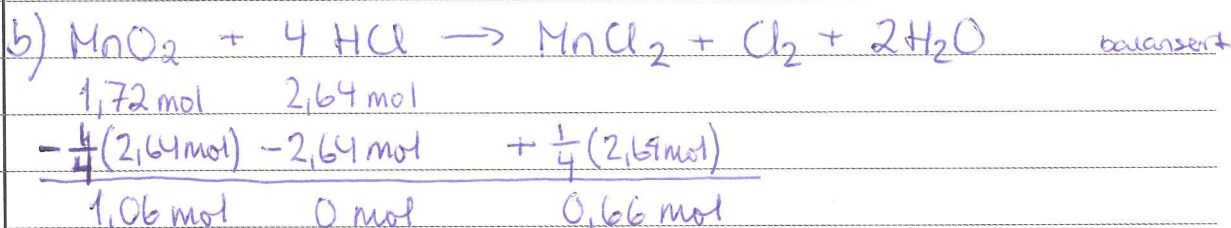 b) MnO₂ + 4 HCl → MnCl₂ + Cl₂ + 2H₂O balansert
1,72 mol 2,64 mol
-¼(2,64mol) -2,64 mol +¼(2,64mol)
1,06 mol 0 mol 0,66 mol